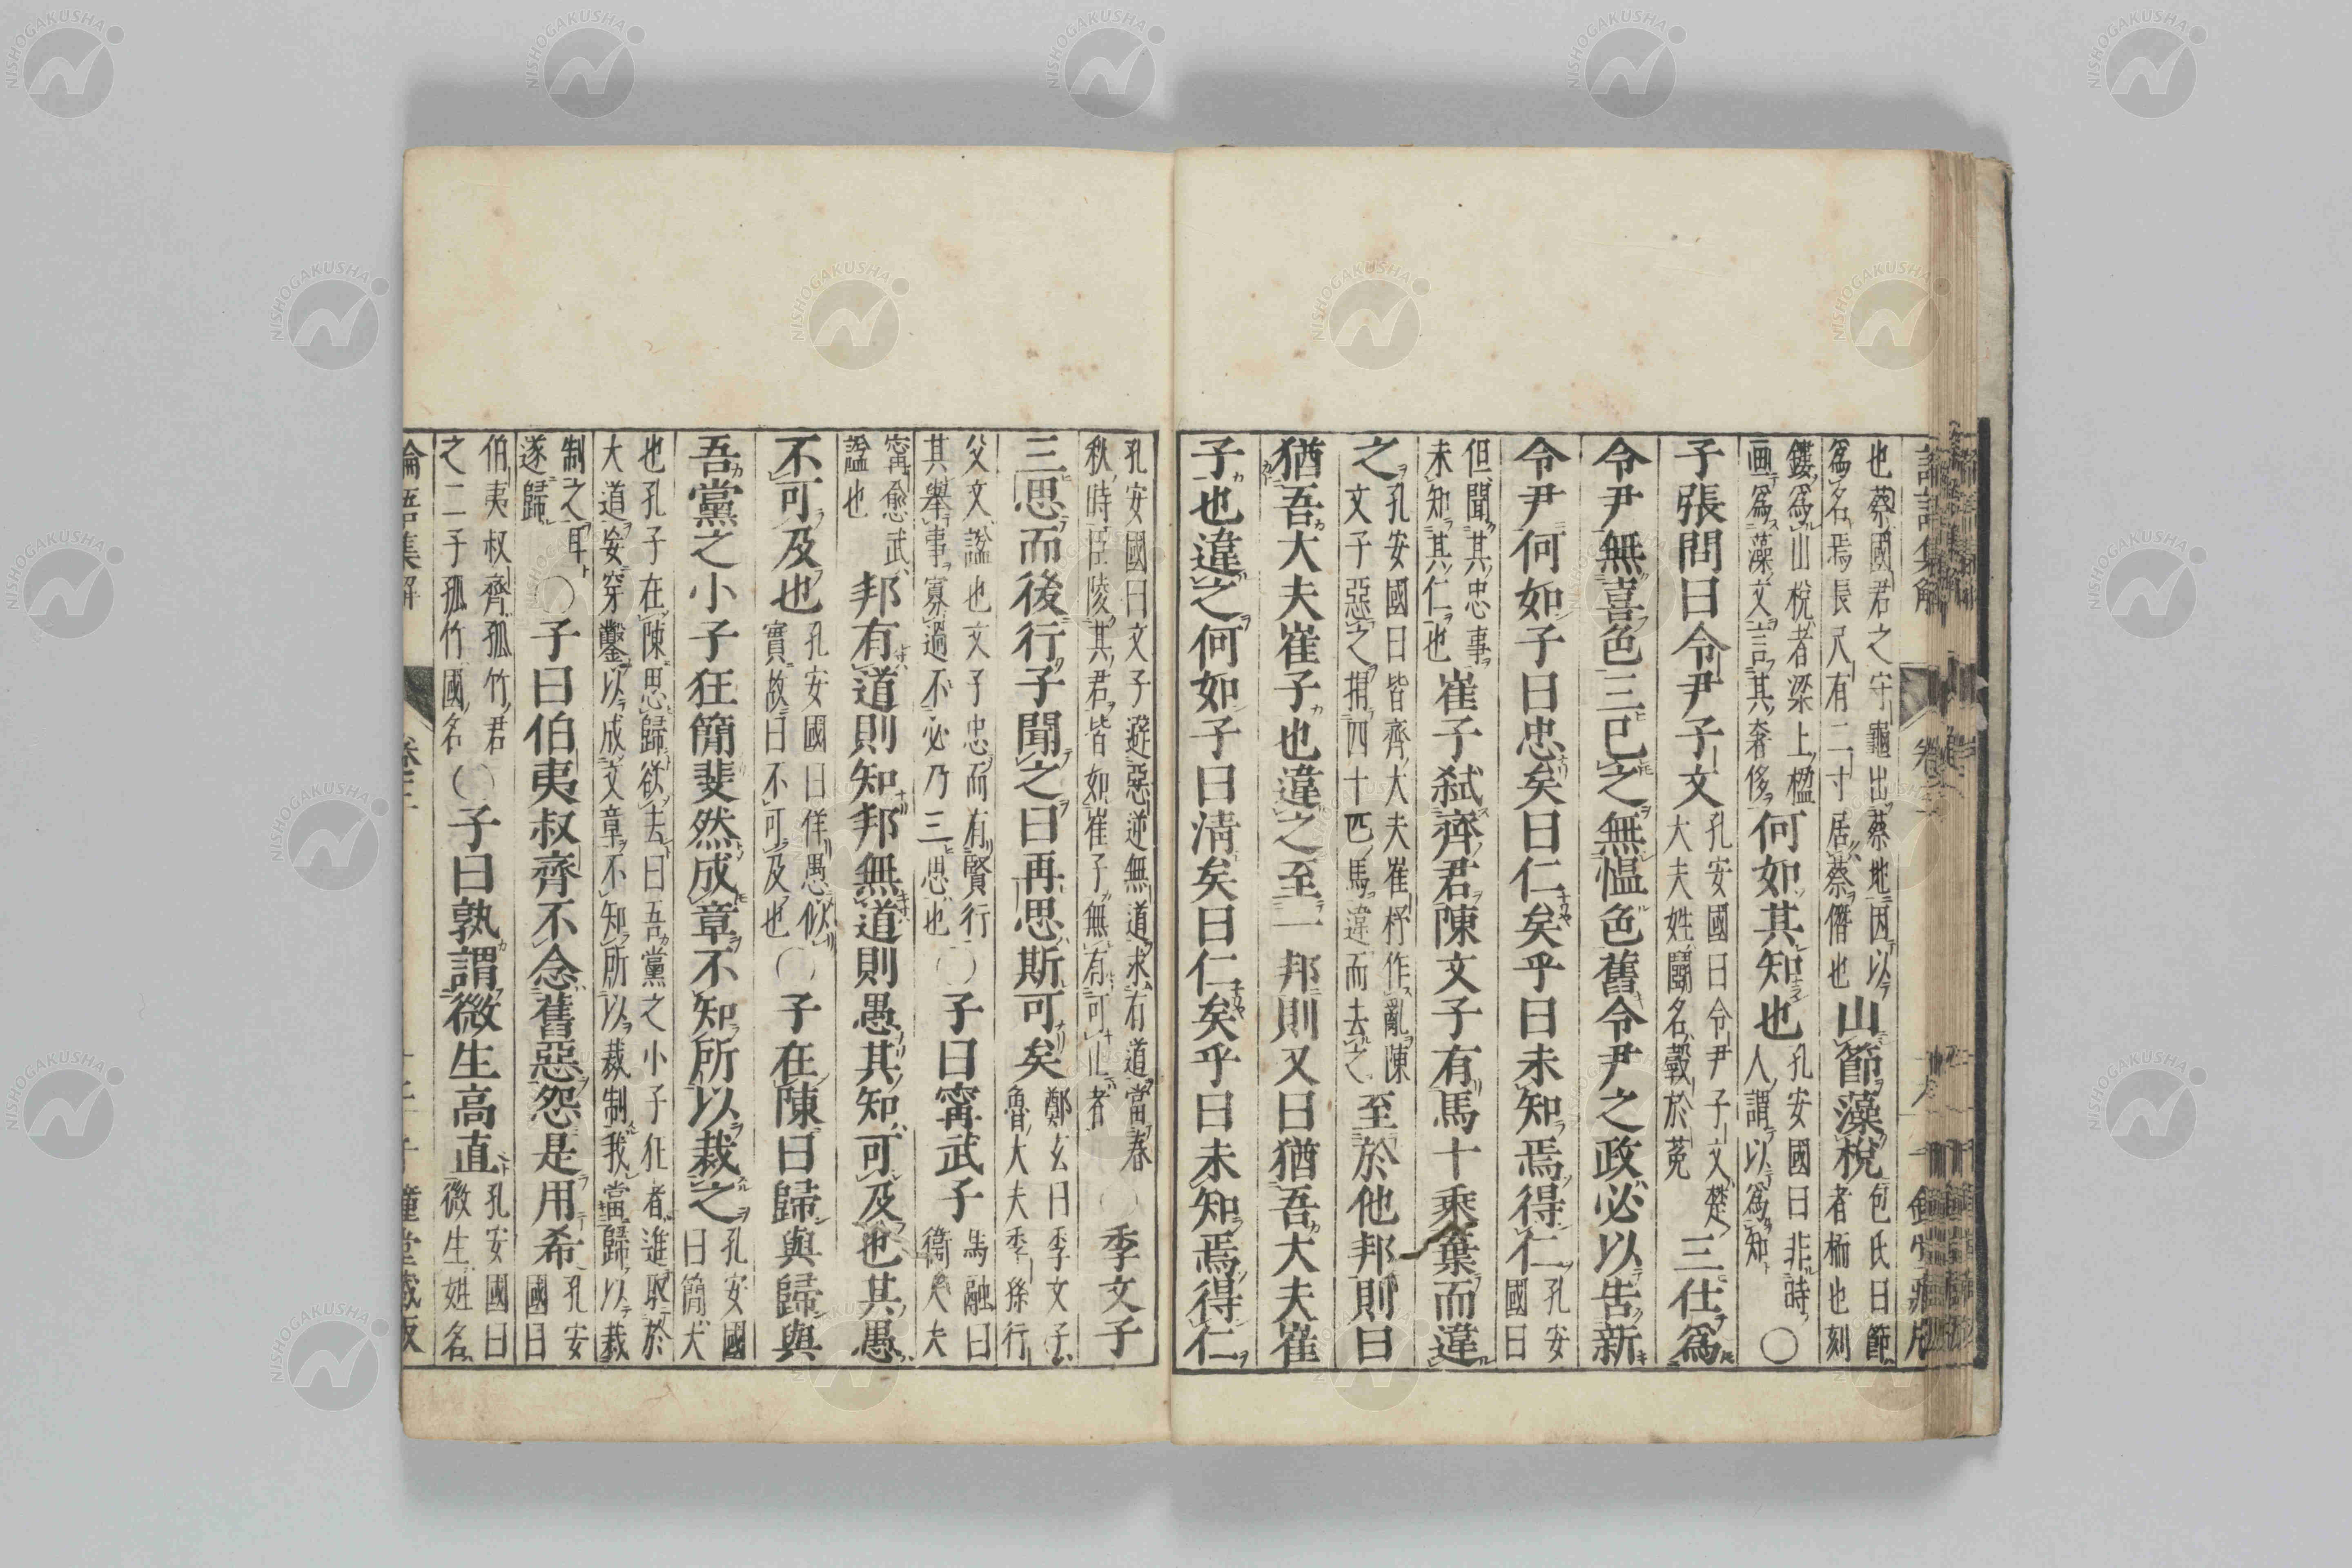 論語集解
也蔡國君之守龜出蔡地因以爲名焉長尺有二寸居蔡僭也山節藻梲包氏曰節者栭也刻
鏤爲山梲者梁上楹画爲藻文言其奢侈何如其知也孔安國曰非時人謂以爲知〇
子張問曰令尹子文孔安國曰令尹子文楚大夫姓鬭名穀於菟三仕爲
令尹無喜色三已之無慍色舊令尹之政必以告新
令尹何如子曰忠矣曰仁矣乎曰未知焉得仁孔安國曰
但聞其忠事未知其仁也崔子弑齊君陳文子有馬十乘棄而違
之孔安國曰皆齊大夫崔杼作亂陳文子惡之捐四十匹馬違而去之至於他邦則曰
猶吾大夫崔子也違之至一邦則又曰猶吾大夫崔
子也違之何如子曰清矣曰仁矣乎曰未知焉得仁
孔安國曰文子避惡逆無道求有道當春秋時臣陵其君皆如崔子無有可止者〇季文子
三思而後行子聞之曰再思斯可矣鄭玄曰季文子魯大夫季孫行
父文諡也文子忠而有賢行其舉事寡過不必乃三思也〇子曰甯武子馬融曰衞大夫
甯愈武諡也邦有道則知邦無道則愚其知可及也其愚
不可及也孔安國曰佯愚似實故曰不可及也〇子在陳曰歸與歸與
吾黨之小子狂簡斐然成章不知所以裁之孔安國曰簡大
也孔子在陳思歸欲去曰吾黨之小子狂者進取於大道妄穿鑿以成文章不知所以裁制我當歸以裁
制之耳遂歸〇子曰伯夷叔齊不念舊惡怨是用希孔安國曰
伯夷叔齊孤竹君之二子孤竹國名〇子曰孰謂微生高直孔安國曰微生姓名
論語集解